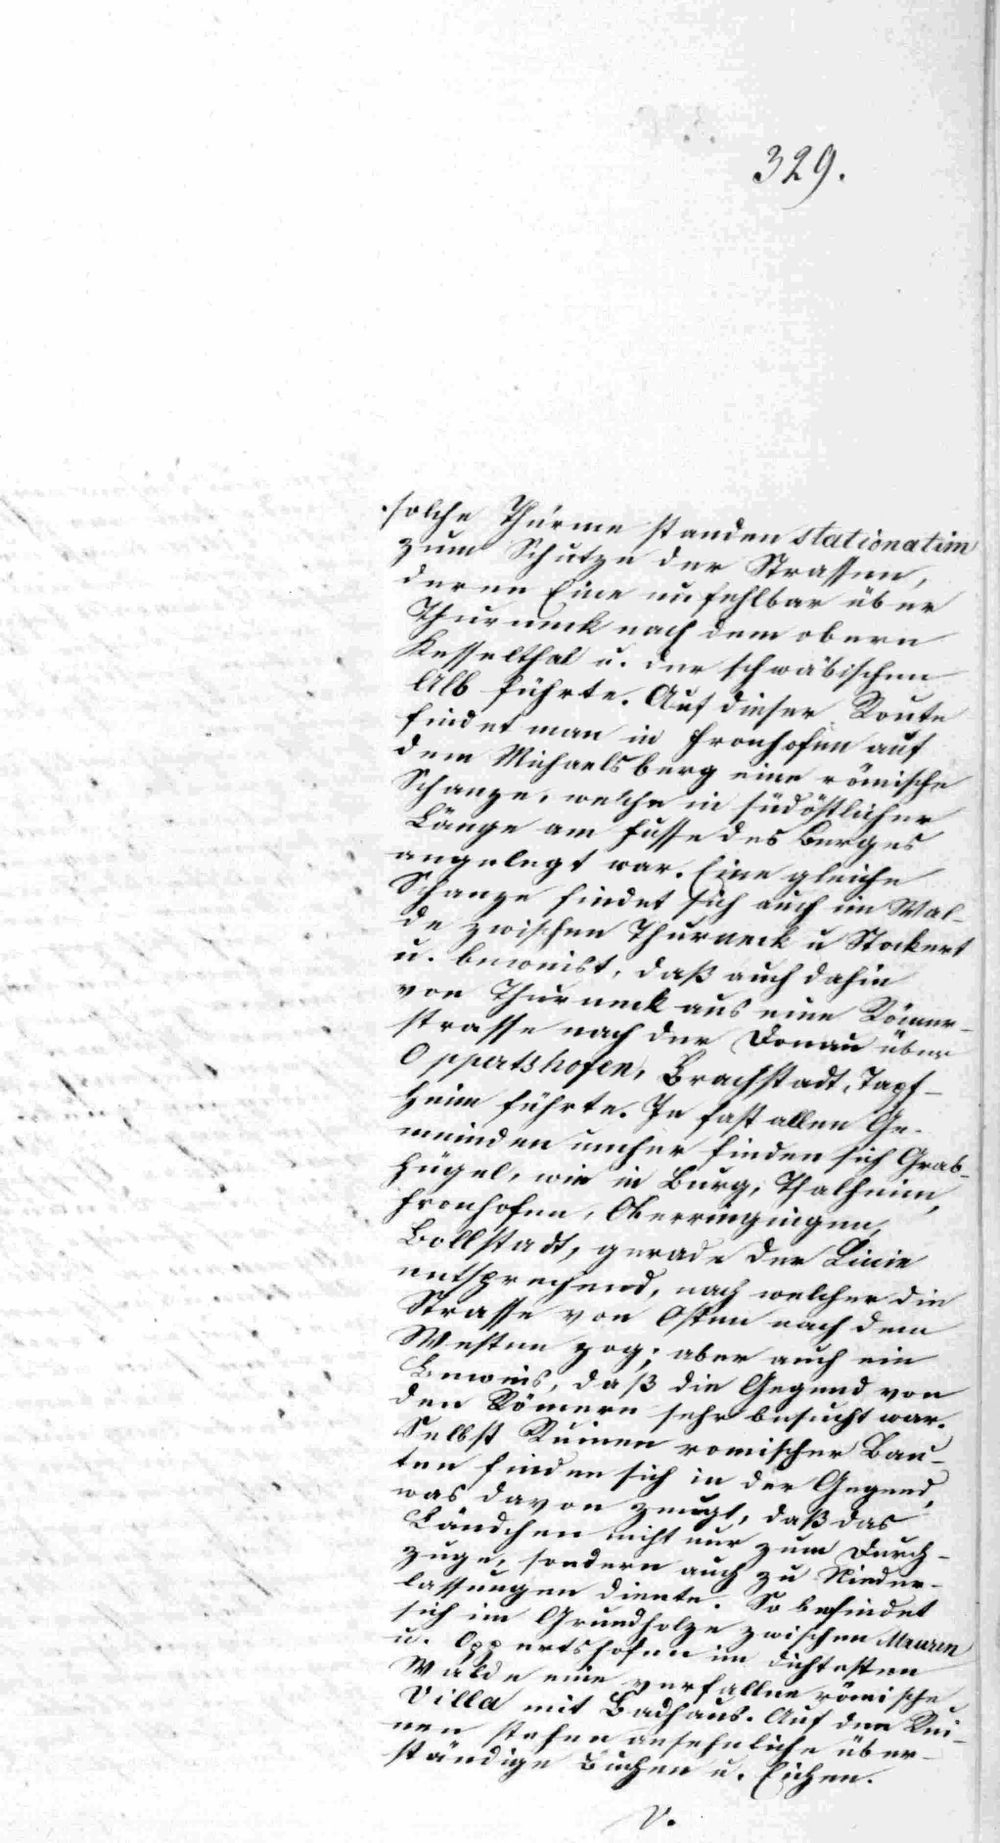 329.
solche Thürme standen stationatim
zum Schutze der Strassen,
deren Eine unfehlbar über
Thurneck nach dem obern
Kesselthal u. der schwäbischen
Alb führte. Auf dieser Route
findet man in Fronhofen auf
dem Michaelsberg eine römische
Schanze, welche in südöstlicher
Länge am Fusse des Berges
angelegt war. Eine gleiche
Schanze findet sich auch im Wal-
de zwischen Thurneck u Stockert
u. beweist, daß auch dahin
von Thurneck aus eine Römer-
strasse nach der Donau über
Oppertshofen, Brachstadt, Tapf-
heim führte. In fast allen Ge-
meinden umher finden sich Grab-
hügel, wie in Burg, Thalheim,
Fronhofen, Oberringingen,
Bollstadt, gerade der Linie
entsprechend, nach welcher die
Strasse von Osten nach dem
Westen zog; aber auch ein
Beweis, daß die Gegend von
den Römern sehr besucht war.
Selbst Ruinen romischer Bau-
ten finden sich in der Gegend,
was davon zeugt, daß das
Ländchen nicht nur zum Durch-
zuge, sondern auch zu Nieder-
lassungen diente. So befindet
sich im Grundholze zwischen Mauren
u. Oppertshofen im dichtesten
Walde eine verfallne römische
Villa mit Badhaus. Auf den Rui-
nen stehen ansehnliche über-
ständige Buchen u. Eichen.
V.